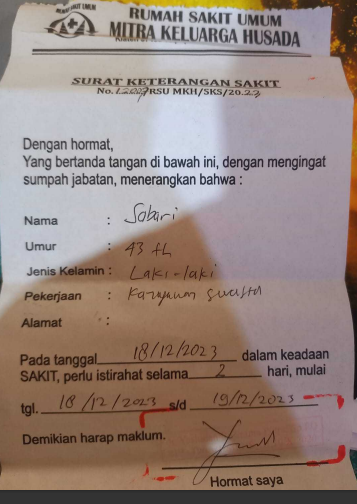 RUMAH SAKIT UMUM
MITRA KELUARGA HUSADA
SURAT KETERANGAN SAKIT
No. RSU MKH/SKS/20.23
Dengan hormat,
Yang bertanda tangan di bawah ini, dengan mengingat
sumpah jabatan, menerangkan bahwa :
Nama : Sobari
Umur : 43 th
Jenis Kelamin : Laki-laki
Pekerjaan : Karyawan swasta
Alamat :
Pada tanggal 18/12/2023 dalam keadaan
SAKIT, perlu istirahat selama 2 hari, mulai
tgl. 18/12/2023 s/d 19/12/2023
Demikian harap maklum.
Hormat saya